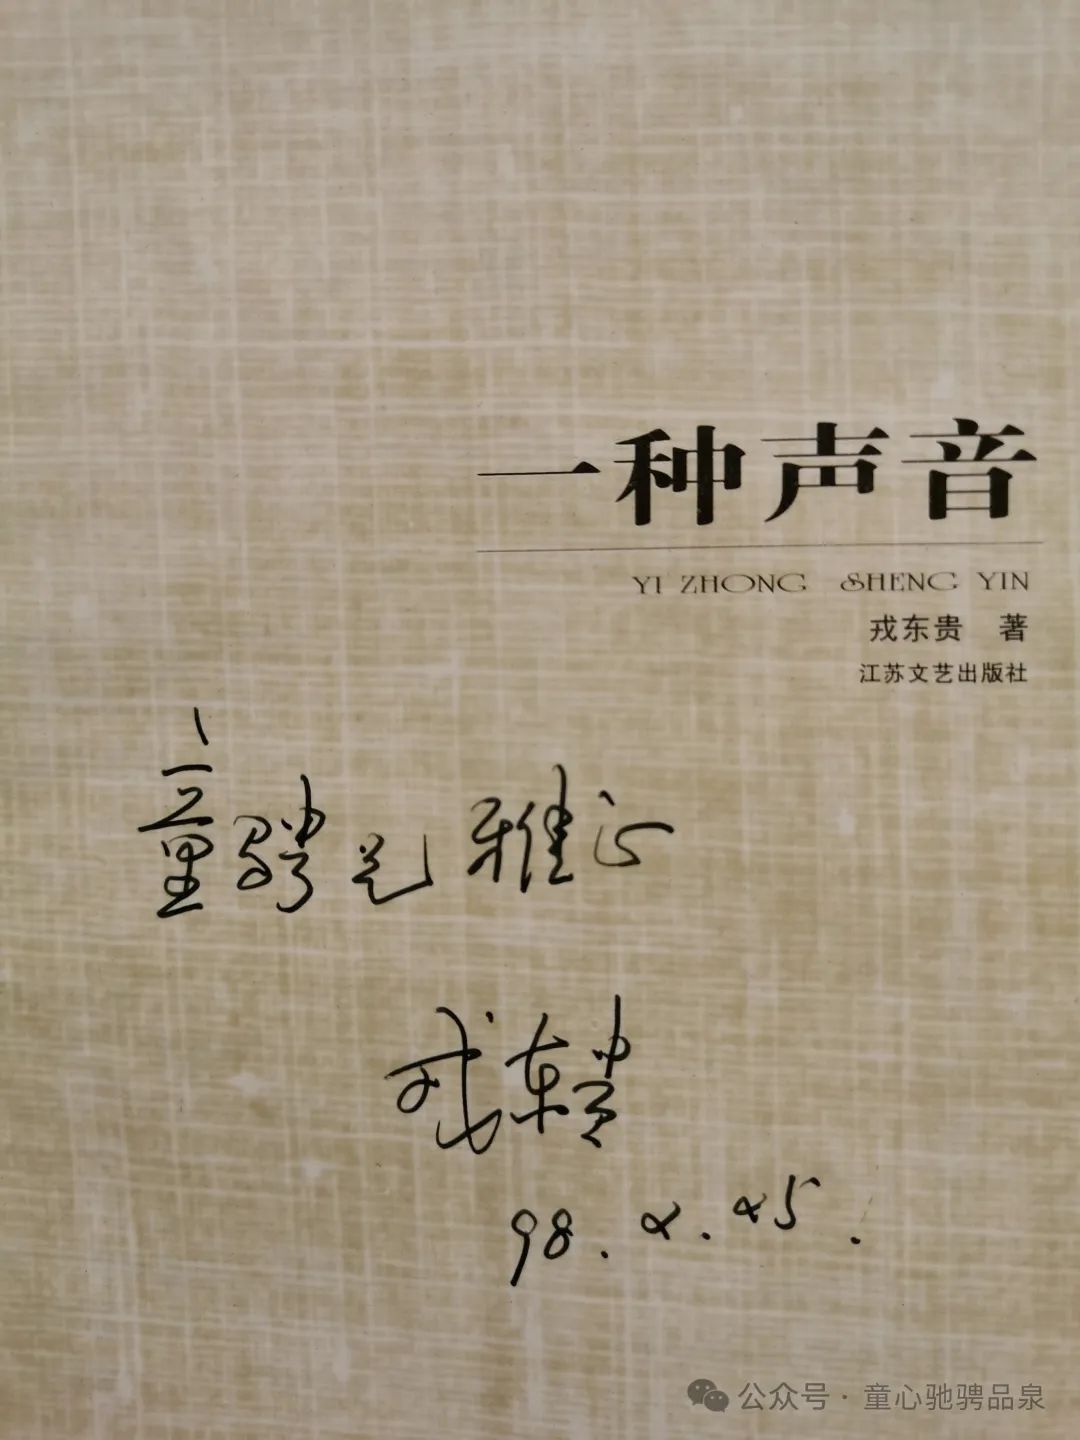 一种声音
YI ZHONG SHENG YIN
戎东贵 著
江苏文艺出版社
童骋兄雅正
戎东贵
98.2.25.
公众号·童心驰骋品泉